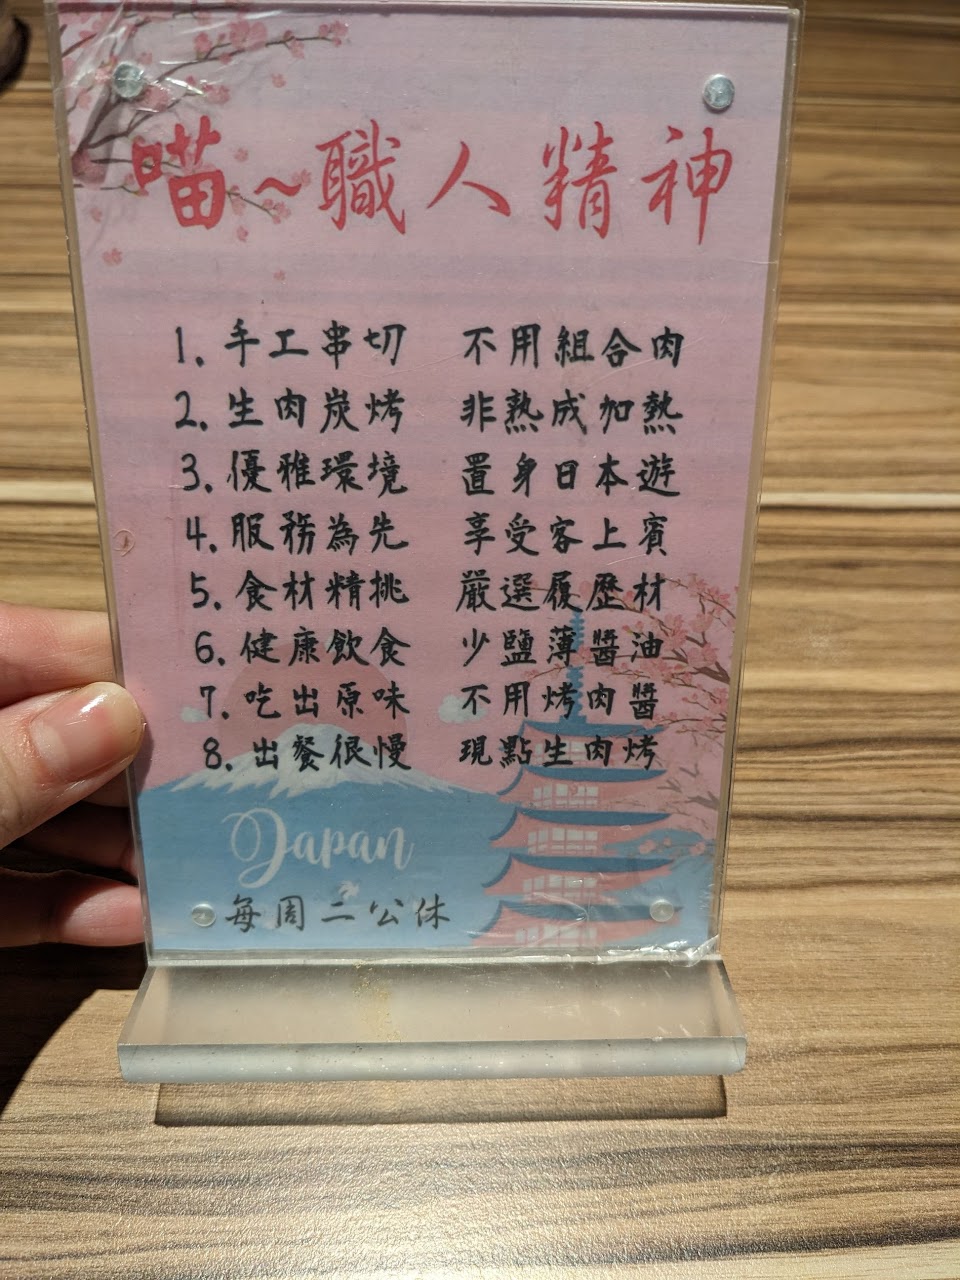 喵~職人精神
1. 手工串切 不用組合肉
2. 生肉炭烤 非熟成加熱
3. 優雅環境 置身日本遊
4. 服務為先 享受客上賓
5. 食材精挑 嚴選履歷材
6. 健康飲食 少鹽薄醬油
7. 吃出原味 不用烤肉醬
8. 出餐很慢 現點生肉烤
Japan
每周二公休